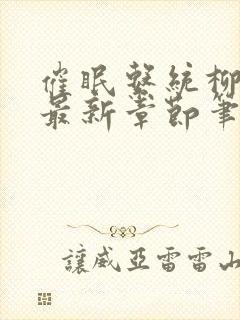 催眠系統柳
最新章節筆
讓威亞雷雷山